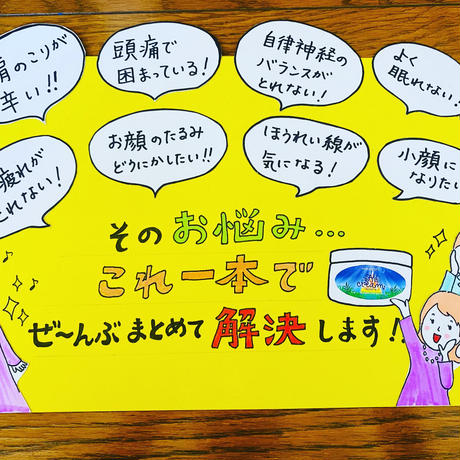 肩のこりが
辛い!!
頭痛で
困まっている!
自律神経の
バランスが
とれない!
よく
眠れない!
疲れが
とれない!
お顔のたるみ
どうにかしたい!!
ほうれい線が
気になる!
小顔に
なりたい
そのお悩み…
これ一本で
ぜ〜んぶまとめて解決します!!